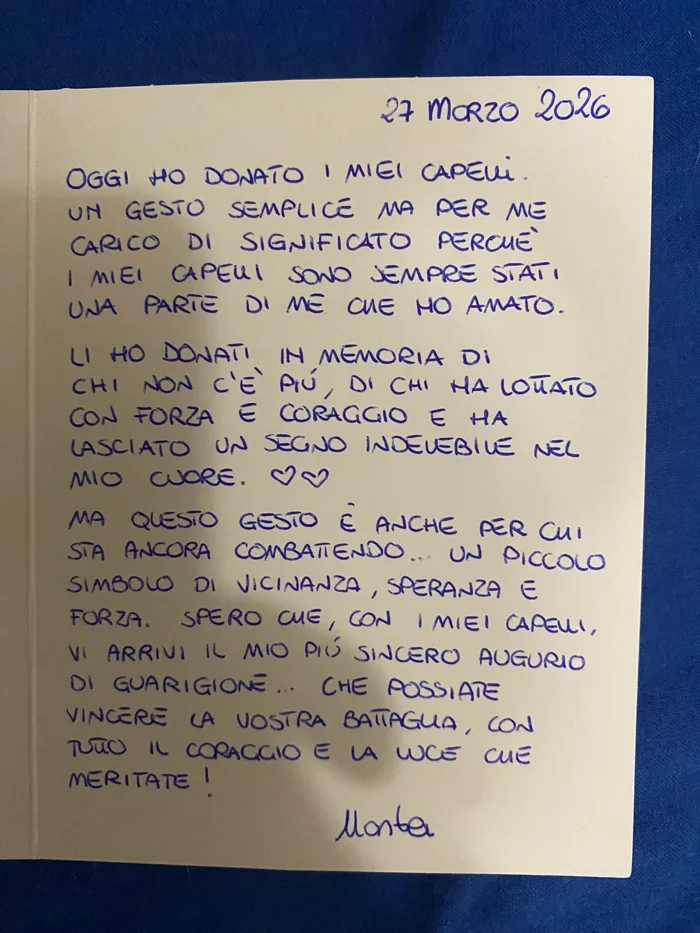 27 MARZO 2026
OGGI HO DONATO I MIEI CAPELLI.
UN GESTO SEMPLICE MA PER ME
CARICO DI SIGNIFICATO PERCHÈ
I MIEI CAPELLI SONO SEMPRE STATI
UNA PARTE DI ME CHE HO AMATO.
LI HO DONATI IN MEMORIA DI
CHI NON C'È PIÚ, DI CHI HA LOTTATO
CON FORZA E CORAGGIO E HA
LASCIATO UN SEGNO INDELEBILE NEL
MIO CUORE. ♡♡
MA QUESTO GESTO È ANCHE PER CHI
STA ANCORA COMBATTENDO... UN PICCOLO
SIMBOLO DI VICINANZA, SPERANZA E
FORZA. SPERO CHE, CON I MIEI CAPELLI,
VI ARRIVI IL MIO PIÚ SINCERO AUGURIO
DI GUARIGIONE... CHE POSSIATE
VINCERE LA VOSTRA BATTAGLIA, CON
TUTTO IL CORAGGIO E LA LUCE CHE
MERITATE!